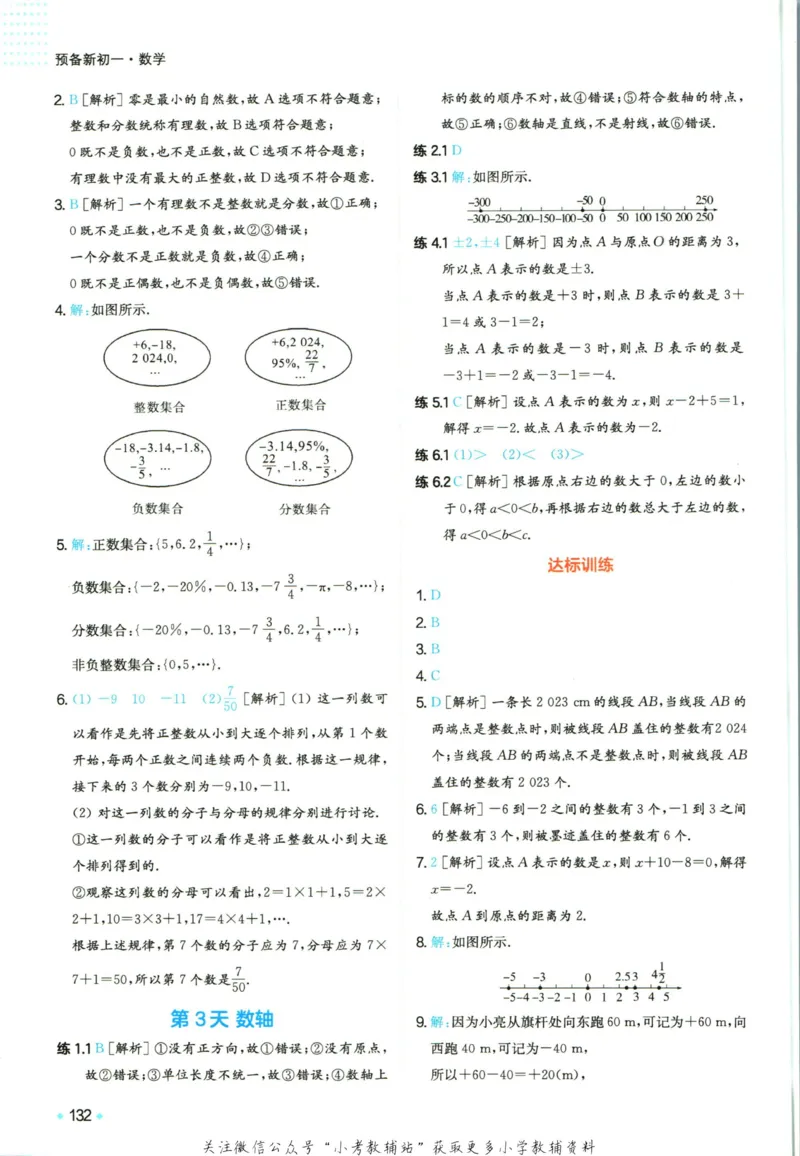 预备新初一·数学
2. B[解析]零是最小的自然数,故A选项不符合题意;
整数和分数统称有理数,故B选项符合题意;
0既不是负数,也不是正数,故C选项不符合题意;
有理数中没有最大的正整数,故D选项不符合题意.
3. B[解析]一个有理数不是整数就是分数,故①正确;
0既不是正数,也不是负数,故②③错误;
一个分数不是正数就是负数,故④正确;
0既不是正偶数,也不是负偶数,故⑤错误.
4. 解:如图所示.
+6,-18,
2 024,0,
…
整数集合
+6,2 024,
95%, 22/7,
…
正数集合
-18,-3.14,-1.8,
-3/5, …
负数集合
-3.14,95%,
22/7,-1.8,-3/5,
…
分数集合
5. 解:正数集合:{5,6.2,1/4,…};
负数集合:{-2,-20%,-0.13,-7 3/4,-π,-8,…};
分数集合:{-20%,-0.13,-7 3/4,6.2,1/4,…};
非负整数集合:{0,5,…}.
6. (1)-9 10 -11 (2)7/50 [解析](1)这一列数可
以看作是先将正整数从小到大逐个排列,从第1个数
开始,每两个正数之间连续两个负数.根据这一规律,
接下来的3个数分别为-9,10,-11.
(2)对这一列数的分子与分母的规律分别进行讨论.
①这一列数的分子可以看作是将正整数从小到大逐
个排列得到的.
②观察这列数的分母可以看出,2=1×1+1,5=2×
2+1,10=3×3+1,17=4×4+1,….
根据上述规律,第7个数的分子应为7,分母应为7×
7+1=50,所以第7个数是7/50.
第3天 数轴
练1.1 B[解析]①没有正方向,故①错误;②没有原点,
故②错误;③单位长度不统一,故③错误;④数轴上
标的数的顺序不对,故④错误;⑤符合数轴的特点,
故⑤正确;⑥数轴是直线,不是射线,故⑥错误.
练2.1 D
练3.1 解:如图所示.
-300 -50 0 250
-300-250-200-150-100-50 0 50 100 150 200 250
练4.1 ±2,±4[解析]因为点A与原点O的距离为3,
所以点A表示的数是±3.
当点A表示的数是+3时,则点B表示的数是3+
1=4或3-1=2;
当点A表示的数是-3时,则点B表示的数是
-3+1=-2或-3-1=-4.
练5.1 C[解析]设点A表示的数为x,则x-2+5=1,
解得x=-2.故点A表示的数为-2.
练6.1 (1)> (2)< (3)>
练6.2 C[解析]根据原点右边的数大于0,左边的数小
于0,得a<0<b,再根据右边的数总大于左边的数,
得a<0<b<c.
达标训练
1. D
2. B
3. B
4. C
5. D[解析]一条长2 023 cm的线段AB,当线段AB的
两端点是整数点时,则被线段AB盖住的整数有2 024
个;当线段AB的两端点不是整数点时,则被线段AB
盖住的整数有2 023个.
6. 6[解析]-6到-2之间的整数有3个,-1到3之间
的整数有3个,则被墨迹盖住的整数有6个.
7. 2[解析]设点A表示的数是x,则x+10-8=0,解得
x=-2.
故点A到原点的距离为2.
8. 解:如图所示.
-5 -3 0 2.53 4 1/2
-5-4-3-2-1 0 1 2 3 4 5
9. 解:因为小亮从旗杆处向东跑60 m,可记为+60 m,向
西跑40 m,可记为-40 m,
所以+60-40=+20(m),
132
关注微信公众号“小考教辅站”获取更多小学教辅资料